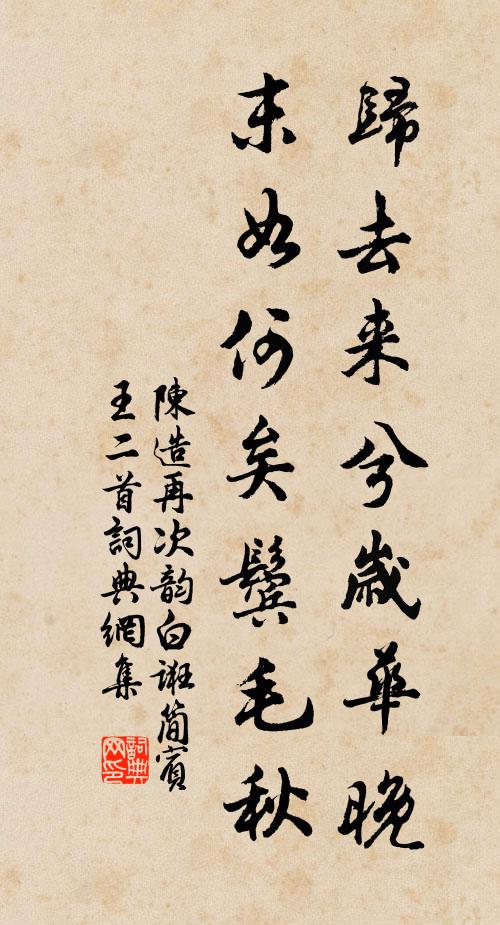 歸去来兮歲華晚
末如何矣鬢毛秋
陳造再次韵白斑簡賓
王二首詞典網集
詞典网印